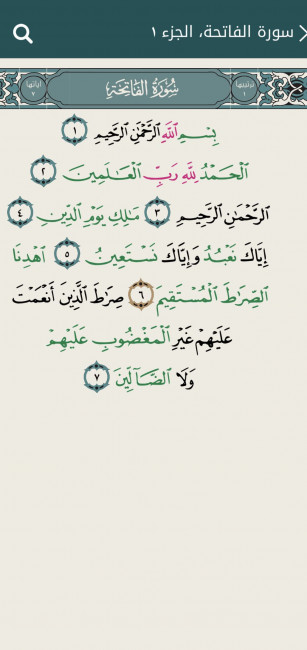 سورة الفاتحة، الجزء ١
ترتيبها ١ سُورَةُ الفَاتِحَةِ آياتها ٧
بِسْمِ ٱللَّهِ ٱلرَّحْمَٰنِ ٱلرَّحِيمِ ١
ٱلْحَمْدُ لِلَّهِ رَبِّ ٱلْعَٰلَمِينَ ٢
ٱلرَّحْمَٰنِ ٱلرَّحِيمِ ٣ مَٰلِكِ يَوْمِ ٱلدِّينِ ٤
إِيَّاكَ نَعْبُدُ وَإِيَّاكَ نَسْتَعِينُ ٥ ٱهْدِنَا
ٱلصِّرَٰطَ ٱلْمُسْتَقِيمَ ٦ صِرَٰطَ ٱلَّذِينَ أَنْعَمْتَ
عَلَيْهِمْ غَيْرِ ٱلْمَغْضُوبِ عَلَيْهِمْ
وَلَا ٱلضَّآلِّينَ ٧